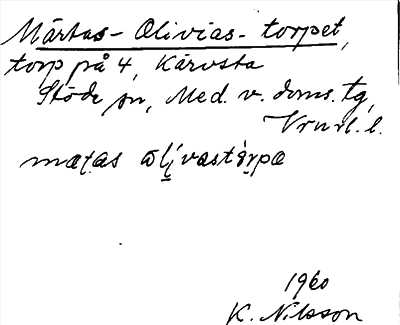 Märtas-Olivias-torpet,
torp på 4, Kärvsta
Stöde sn, Med. v. doms. tg,
Vrnrl. l.
mæṭas olívastòrpæ
1960
K. Nilsson